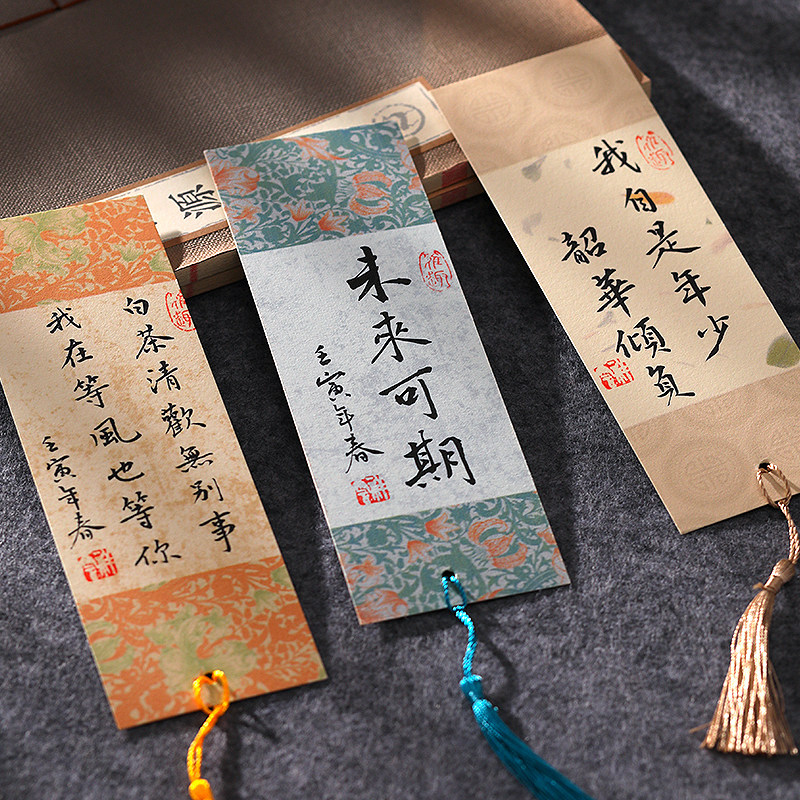 白茶清歡無別事
我在等風也等你
壬寅年春
未來可期
壬寅年春
我自是年少
韶華傾負
源